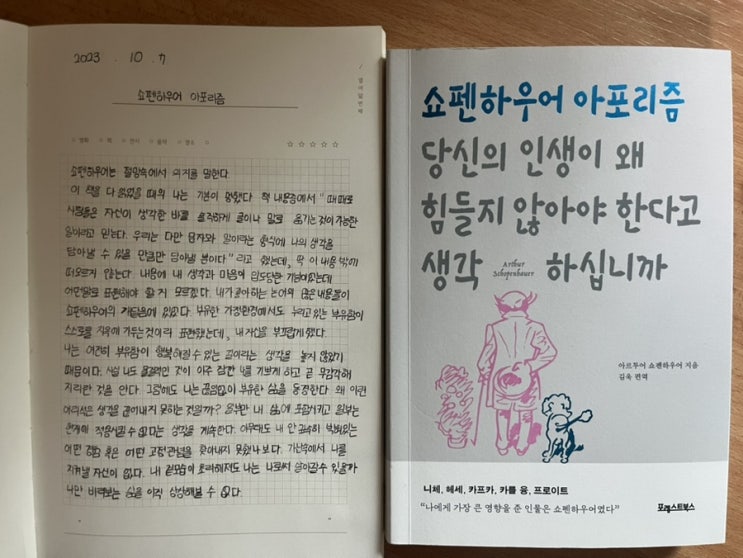 2023 . 10 . 7
열여덟번째
쇼펜하우어 아포리즘
영화 책 전시 음악 장소
☆☆☆☆☆
쇼펜하우어는 절망속에서 의지를 말한다.
이 책을 다 읽었을 때의 나는 기분이 멍했다. 책 내용중에서 "때때로
사람들은 자신이 생각한 바를 솔직하게 글이나 말로 옮기는 것이 가능한
일이라고 믿는다. 우리는 다만 문자와 말이라는 형식에 나의 생각을
담아낼 수 있을 만큼만 담아낼 뿐이다" 라고 했는데, 딱 이 내용 밖에
떠오르지 않는다. 내용에 내 생각과 마음이 압도당한 기분이었는데
어떤말로 표현해야 할 지 모르겠다. 내가 좋아하는 논어의 많은 내용들이
쇼펜하우어의 가르침에 있었다. 부유한 가정환경에서도 누리고 있는 부유함이
스스로를 지옥에 가두는 것이라 표현했는데, 내 자신을 부끄럽게 했다.
나는 여전히 부유함이 행복해질 수 있는 길이라는 생각을 놓지 않았기
때문이다. 사실 나도 물질적인 것이 아주 잠깐 나를 기쁘게 하고 곧 무감각해
지리란 것을 안다. 그럼에도 나는 끊임없이 부유한 삶을 동경한다. 왜 이런
어리석은 생각을 끊어내지 못하는 것일까? 일부만 내 삶에 포함시키고 일부는
현실에 적용시킬 수 없다는 생각을 계속한다. 아무래도 내 안 깊숙히 박혀있는
어떤 경험 혹은 어떤 고정관념을 찾아내지 못했나보다. 가난속에서 나를
지켜낼 자신이 없다. 내 겉모습이 초라해져도 나는 나로써 살아갈 수 있을까
나만 바라보는 삶을 아직 상상해볼 수 없다.
쇼펜하우어 아포리즘
당신의 인생이 왜
힘들지 않아야 한다고
생각 하십니까
Arthur
Schopenhauer
아르투어 쇼펜하우어 지음
김욱 편역
니체, 헤세, 카프카, 카를 융, 프로이트
"나에게 가장 큰 영향을 준 인물은 쇼펜하우어였다"
포레스트북스